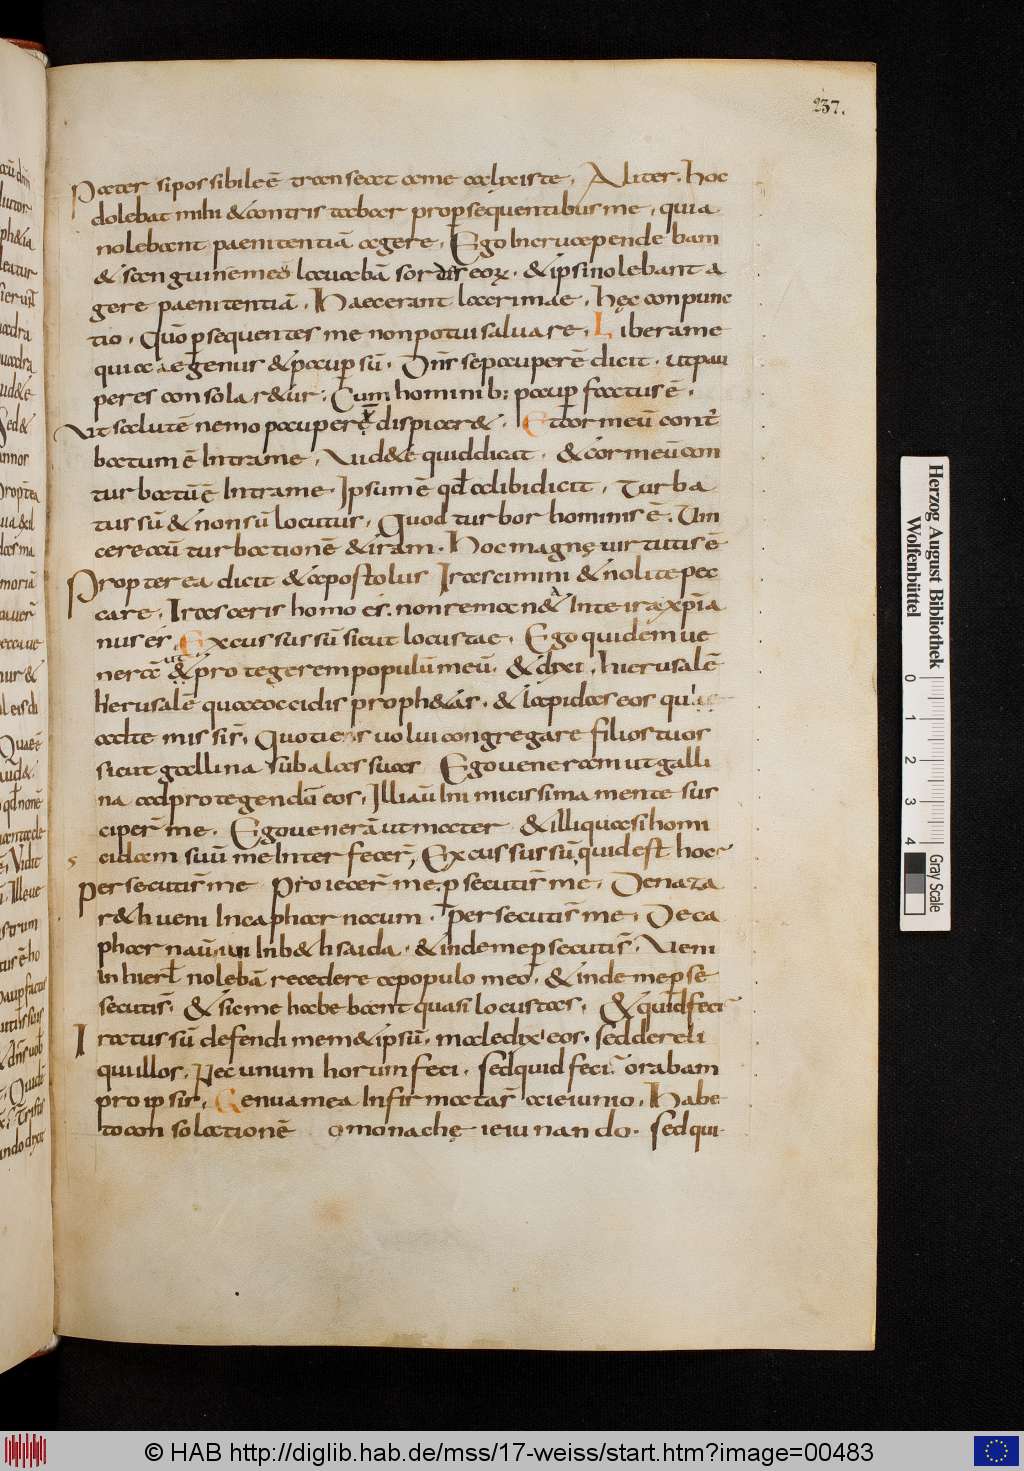 237.
Pater si possibile ē transeat a me calix iste, Aliter. hoc
dolebat mihi & contristabar propsequentibus me, quia
nolebant paenitentiā agere, Ego In cruce pendebam
& sanguinē meō lavabā sordis eoꝝ. & ipsi nolebant a
gere paenitentiā. Haec erant lacrimae, hęc conpunc
tio, Quō psequentes me non potui salvare, Libera me
quia egenus & paup sū. Dn̄s se pauperē dicit. ut pau
peres consolar&ur; Cum hominib; paup factus ē.
Ut salutē nemo pauperę dispicer&. Et cor meū cont
batum ē Intra me, Vid&e quid dicat. & cor meū con
turbatū ē Intra me. Ipsum ē qd̄ alibi dicit, Turba
tus sū & non sū locutus, Quod turbor hominis ē. Vin
cere aū turbationē & iram. Hoc magnę virtutis ē
Propterea dicit & apostolus Irascimini & nolite pec
care. Irasceris homo es. non reman& In te ira xp̄ia
nus es, Excussus sū sicut locustae. Ego quidem ve
nerā ut & protegerem populū meū. & dixi, hierusalē
hierusalē quae occidis proph&as. & lapidas eos qui
ad te missi s̄. Quotiens volui congregare filios tuos
sicut gallina sub alas suas Ego veneram ut galli
na ad protegendū eos, Illi aū Inimicissima mente sus
ceper̄ me. Ego venerā ut mater & illi quasi homi
cidam suū me Interfecer̄, Excussus sū quid est hoc
Persecuti s̄ me Proiecer̄ me. psecuti s̄ me, De naza
r&h veni In capharnaum. persecuti s̄ me, De ca
pharnaū veni In b&hsaida. & inde me psecuti s̄. Veni
in hierl̄ nolebā recedere a populo meo, & inde me pse
secuti s̄. & sic me habebant quasi locustas, & quid feci
Iratus sū defendi mem&ipsū. maledixi eos. sed dereli
qui illos. Nec unum horum feci. sed quid feci? orabam
pro ipsis, Genua mea Infirmata s̄ a ieiunio, Habe
to consolationē o monachę ieiunando. sed qui
Herzog August Bibliothek
Wolfenbüttel
0 1 2 3 4
Gray Scale
© HAB http://diglib.hab.de/mss/17-weiss/start.htm?image=00483